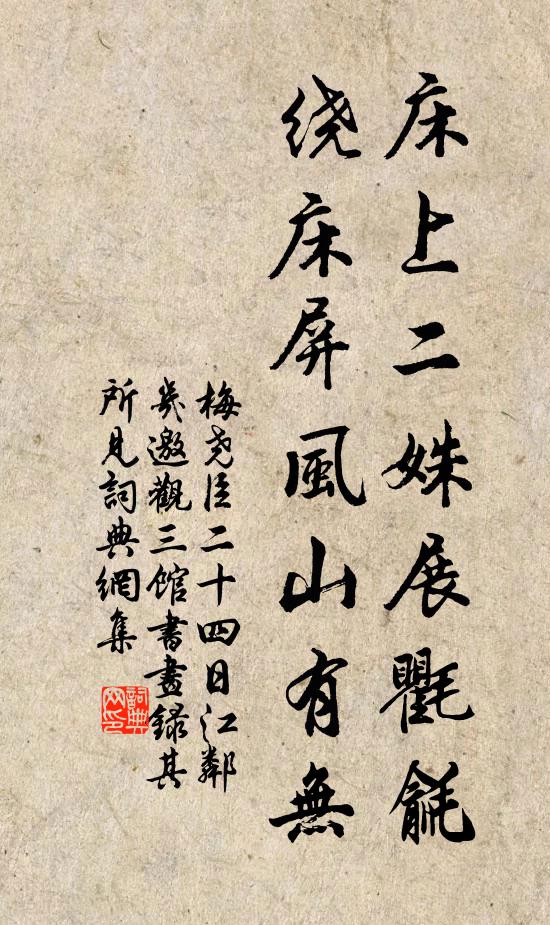 床上二姝展氍毹
绕床屏風山有無
梅尧臣二十四日江鄰
幾邀觀三館書畫録其
所見詞典網集
詞典
网印